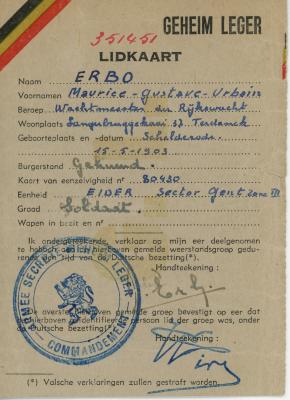 GEHEIM LEGER
351451
LIDKAART
Naam ERBO
Voornamen Maurice - Gustave - Urbain
Beroep Wachtmeester der Rijkswacht
Woonplaats 57
Geboorteplaats en -datum Schelderode.
15-5-1903
Burgerstand Gehuwd.
Kaart van eenzelvigheid nº 80430
Eenheid EIDER Sector Gent zone III
Graad Soldaat.
Wapen in bezit en nº
Ik ondergeteekende, verklaar op mijn eer deelgenomen
te hebben aan hierboven gemelde weerstandsgroep gedu-
rende den tijd van de Duitsche bezetting(*).
Handteekening :
De overste hierboven gemelde groep bevestigt op eer dat
hierboven geïdentifieerde persoon lid der groep was, onder
de Duitsche bezetting(*).
Handteekening :
ARMEE SECRETE GEHEIM LEGER
COMMANDEMENT
(*) Valsche verklaringen zullen gestraft worden.